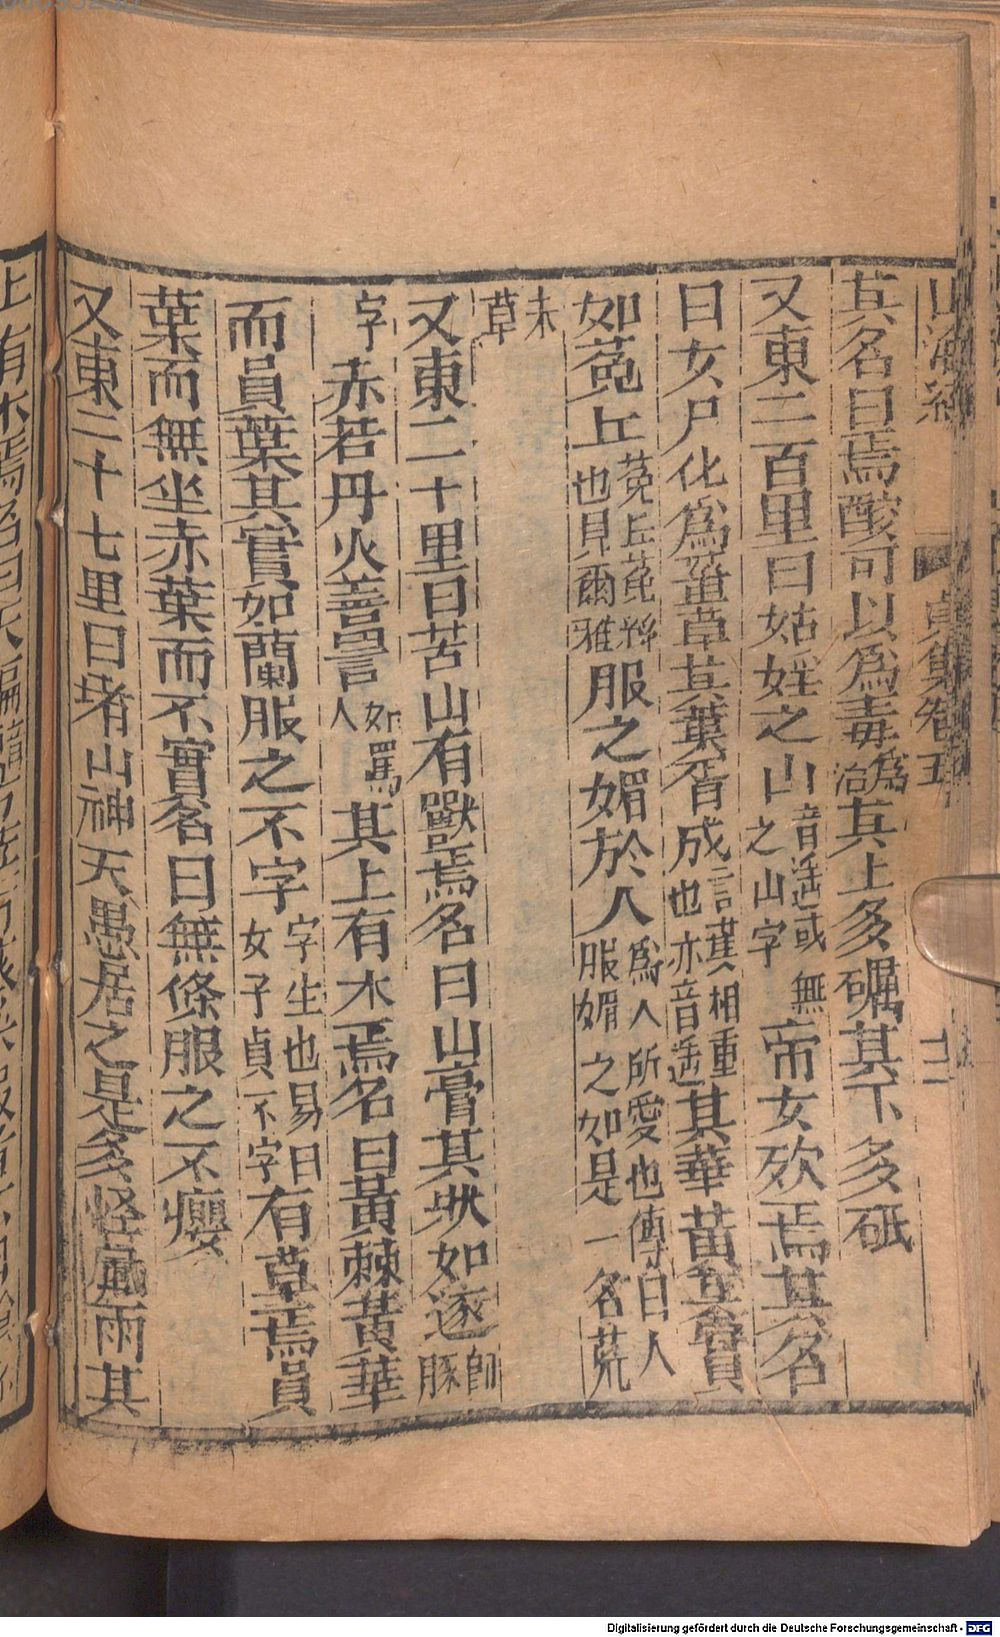 山海經 貞集卷五 十二
其名曰焉酸可以爲毒爲治其上多礪其下多砥
又東二百里曰姑媱之山音遥或無之山字帝女死焉其名
曰女尸化爲䔄草其葉胥成言葉相重也亦音遥其華黄其實
如菟丘菟丘菟絲也見爾雅服之媚於人爲人所愛也傳曰人服媚之如是一名荒
未草
又東二十里曰苦山有獸焉名曰山膏其狀如逐即豚
字赤若丹火善詈如罵人其上有木焉名曰黄棘黄華
而員葉其實如蘭服之不字字生也易曰女子貞不字有草焉員
葉而無坐赤葉而不實名曰無條服之不癭
又東二十七里曰堵山神天愚居之是多怪風雨其
上有木焉名曰天楄
Digitalisierung gefördert durch die Deutsche Forschungsgemeinschaft - DFG